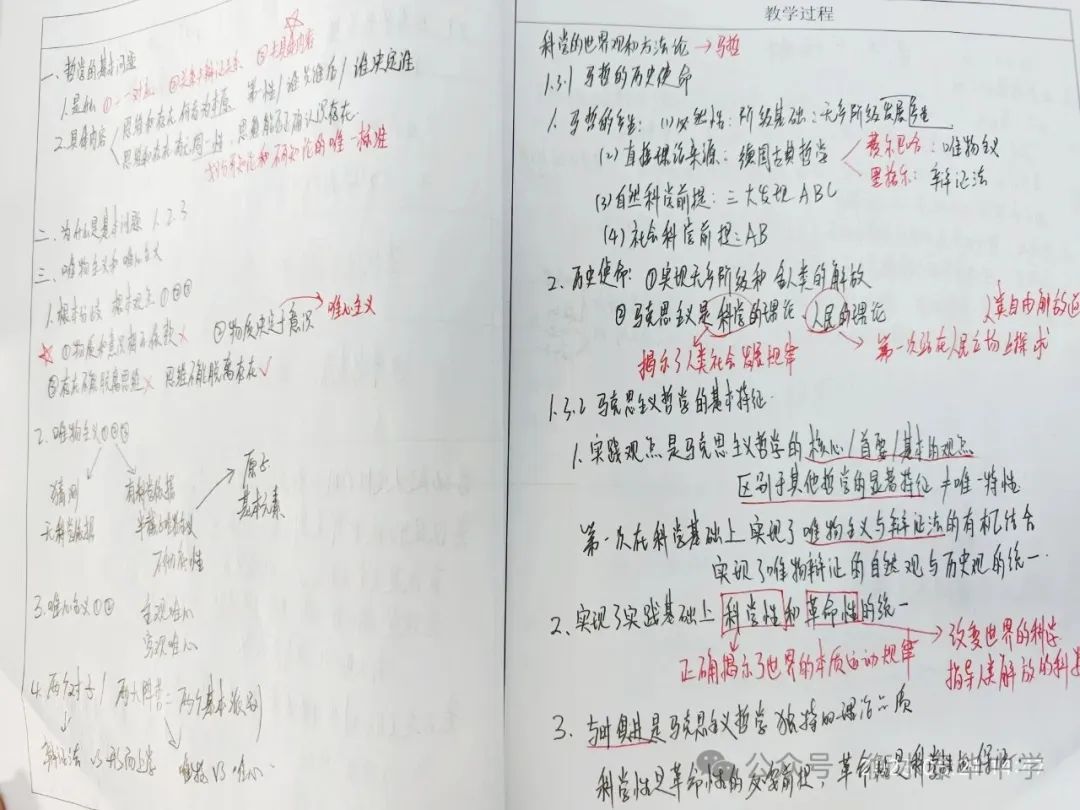 一、哲学的基本问题
1.是什么 ①一对 ②关系 辩证关系 ③具体内容
2.具体内容 思维和存在何者为本原 第一性/谁先谁后/谁决定谁
思维和存在有无同一性，思维能否正确认识存在
划分可知论和不可知论的唯一标准
二、为什么是基本问题 1.2.3
三、唯物主义和唯心主义
1.根本分歧 根本观点①②③
①物质和意识 × ②物质决定于意识 → 唯心主义
③存在不能脱离思维× 思维不能脱离存在√
2.唯物主义①②③
猜测 有科学依据 → 原子
无科学依据 基本元素
3.唯心主义①② 主观唯心
客观唯心
4.两个对子/两大阵营：两个基本派别
辩证法 VS 形而上学 唯物 VS 唯心
教学过程
科学的世界观和方法论 → 马哲
1.3.1 马哲的历史使命
1.马哲的产生：(1)必然性：阶级基础：无产阶级发展
(2)直接理论来源：德国古典哲学 费尔巴哈：唯物主义
黑格尔：辩证法
(3)自然科学前提：三大发现ABC
(4)社会科学前提：AB
2.历史使命：①实现无产阶级和全人类的解放
②马克思主义是科学的理论 人民的理论 人类自由解放
揭示了人类社会发展规律 第一次站在人民立场上探求
1.3.2 马克思主义哲学的基本特征
1.实践观点是马克思主义哲学的核心/首要/基本的观点
区别于其他哲学的显著特征≠唯一特性
第一次在科学基础上实现了唯物主义与辩证法的有机结合
实现了唯物辩证的自然观与历史观的统一.
2.实现了实践基础上科学性和革命性的统一
正确揭示了世界的本质运动规律 → 改变世界的科学
指导人类解放的科
3.与时俱进是马克思主义哲学独特的理论品质
科学性是革命性的必要前提，革命性是科学性的保
公众号